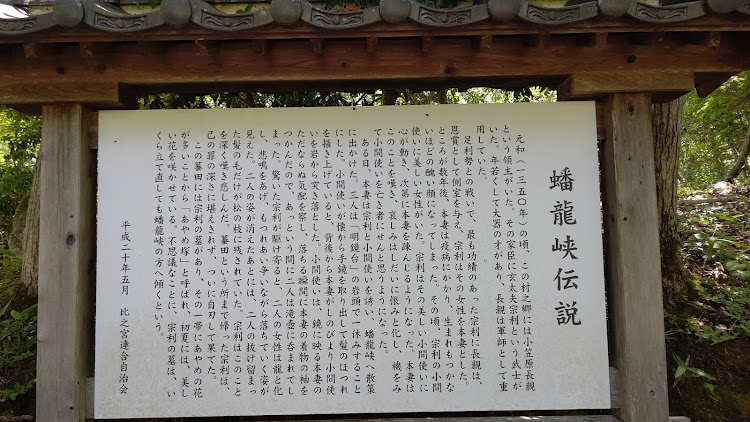 蟠龍峡伝説
元和(一三五〇年)の頃、この村之郷には小笠原長親
という領主がいた。その家臣に玄太夫宗利という武士が
いた。年若くして大器の才があり、長親は軍師として重
用していた。
足利勢との戦いで、最も功績のあった宗利に長親は、
恩賞として側室を与え、宗利はその女性を本妻とした。
ところが数年後、本妻は疫病にかかり、生まれもつかな
いほどの醜い顔になってしまった。その頃、宗利の小間
使いに美しい女性がいた。宗利はその美しい小間使いに
心が動き、次第に本妻を疎んじるようになった。本妻は
このことを嘆き、哀しみはしだいに恨みと化し、機をみ
て小間使いを亡き者にせんと思うようになった。
ある日、本妻は宗利と小間使いを誘い、蟠龍峡へ散策
に出かけた。三人は「明鏡台」の岩頭で一休みすること
にした。小間使いが懐から手鏡を取り出して髪のほつれ
を掻き上げていると、背後から本妻がしのびより小間使
いを岩から突き落とした。小間使いは、鏡に映る本妻の
ただならぬ気配を察し、落ちる瞬間に本妻の着物の袖を
つかんだので、あっという間に二人は滝壺に呑まれてし
まった。驚いた宗利が駆け寄ると、二人の女性は龍と化
し、悲鳴をあげ、もつれあい争いながら落ちていく姿が
見えた。二人の姿が消えたあとには、二人の抜け留まっ
た髪の毛だけが松の枝に残されていた。宗利はこのこと
を深く嘆き悲しんだ。墓田という所まで帰った宗利は、
己の罪の深さに堪えきれず、ついに自刃して果てた。
この墓田には宗利の墓があり、その一帯にあやめの花
が多いことから「あやめ塚」と呼ばれ、初夏には、美し
い花を咲かせている。不思議なことに、宗利の墓は、い
くら立て直しても蟠龍峡の方へ傾くという。
平成二十年五月 比之宮連合自治会